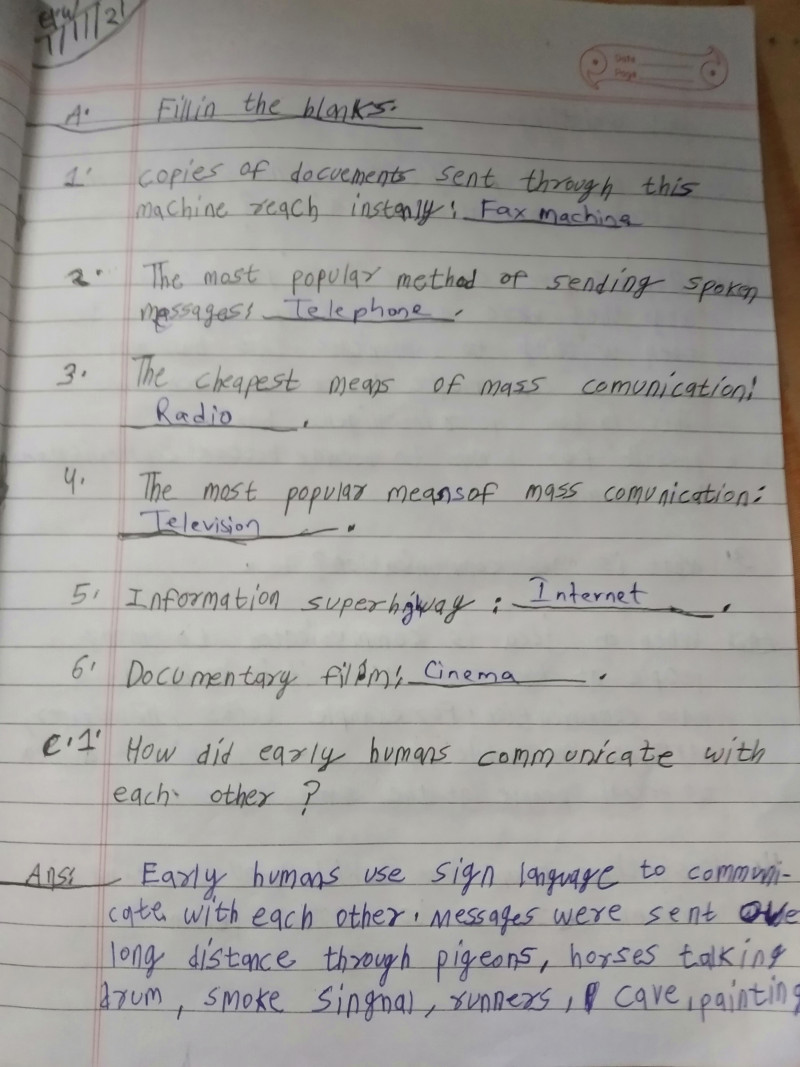 7/11/21
Date
Page
A. Fill in the blanks.
1. copies of docuements sent through this
machine reach instenly: Fax machine
2. The most popular method of sending spoken
messages: Telephone.
3. The cheapest means of mass comunication:
Radio.
4. The most popular means of mass comunication:
Television.
5. Information superhighway: Internet.
6. Documentary film: Cinema.
C.1. How did early humans communicate with
each other?
Ans: Early humans use sign language to communi-
cate with each other. Messages were sent over
long distance through pigeons, horses talking
drum, smoke singnal, runners, cave, painting